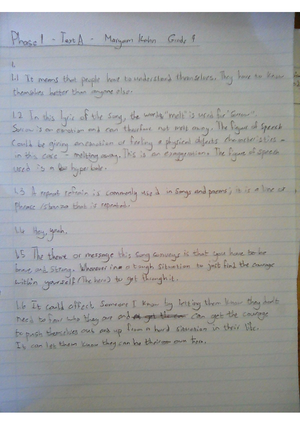 Phase 1 - Task A - Maryam Grade 9
1.
1.1 It means that people have to understand themselves. They have to know
themselves better than anyone else.
1.2 In this lyric of the song, the words "melt" is used for "sorrow".
Sorrow is an emotion and can therefore not melt away. The figure of speech
could be giving an emotion or feeling a physical objects characteristics
in this case - melting away. This is an exaggeration. The figure of speech
used is a hyperbole.
1.3 A repeat refrain is commonly used in songs and poems, it is a line or
phrase that is repeated.
1.4 Hey, yeah.
1.5 The theme or message this song conveys is that you have to be
brave and strong. Whenever in a tough situation to just find the courage
within yourself (The hero) to get through it.
1.6 It could affect someone I know by letting them know they don't
need to who they are and can get the courage
to push themselves out from a hard situation in their life.
It can let them know they can be their own hero.